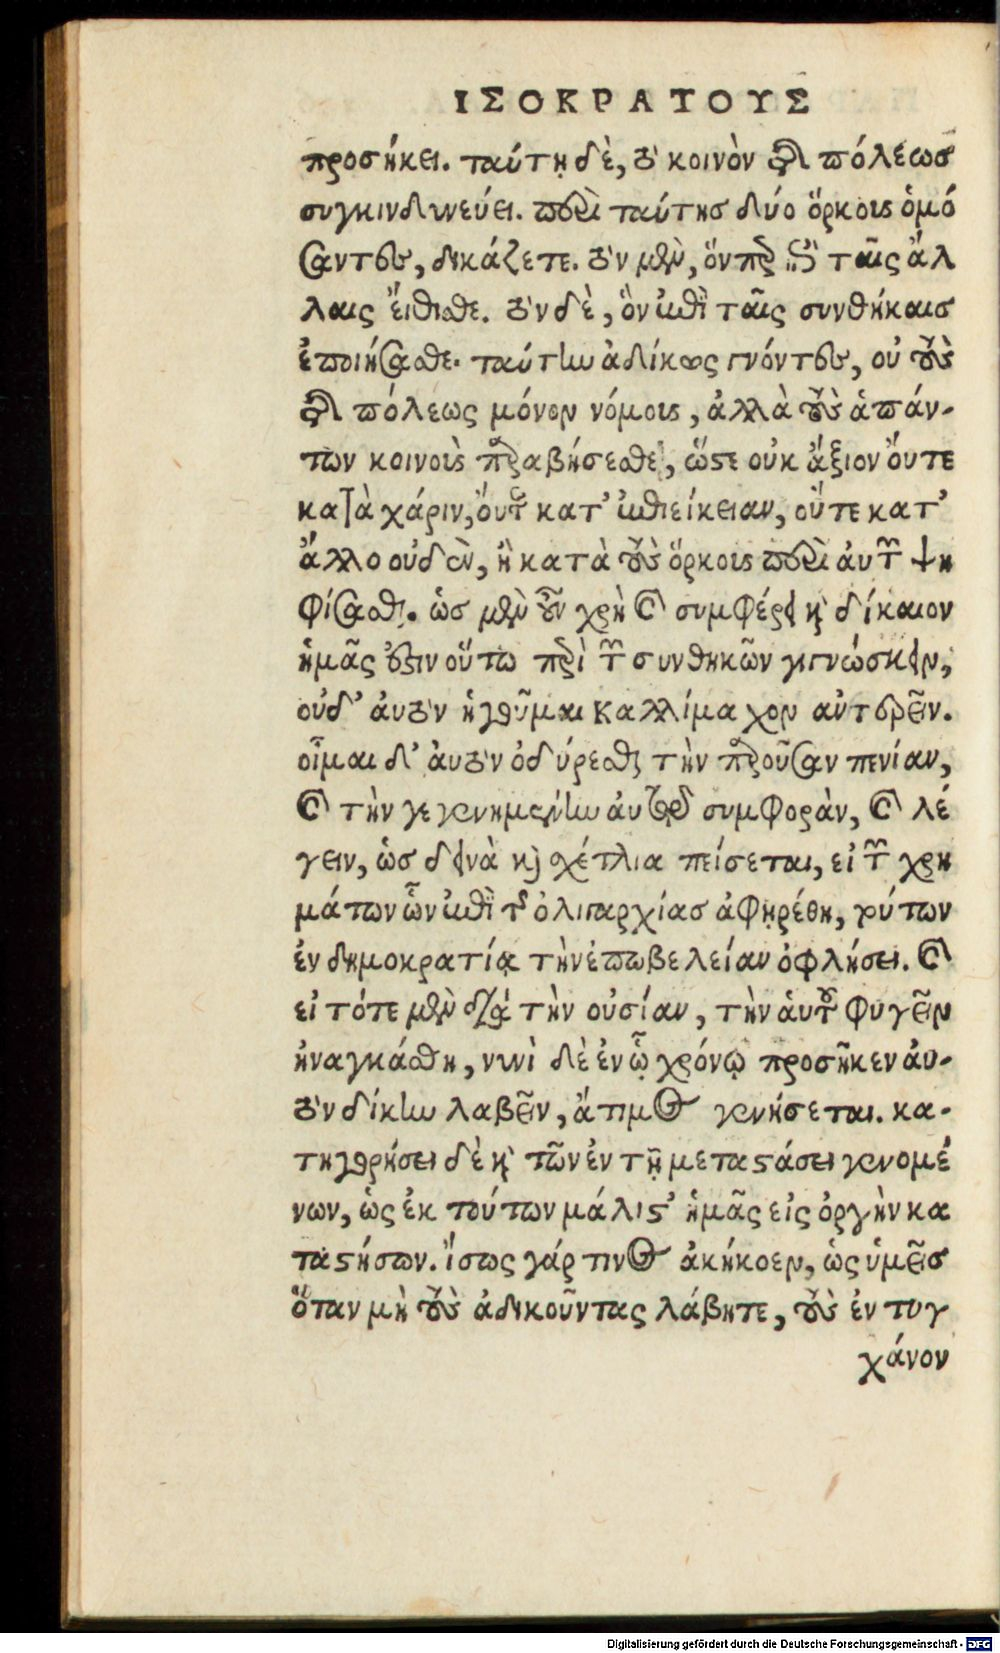 ΙΣΟΚΡΑΤΟΥΣ
προσήκει. ταύτῃ δὲ, τὸ κοινὸν τῆς πόλεωσ
συγκινδυνεύει. περὶ ταύτησ δύο ὅρκουσ ὀμό
σαντες, δικάζετε. τὸν μὲν, ὅνπερ ἐπὶ ταῖς ἄλ
λαις ἔιθισθε. τὸν δὲ, ὃν ἐπὶ ταῖς συνθήκαισ
ἐποιήσασθε. ταύτην ἀδίκως γνόντες, οὐ τοὺς
τῆς πόλεως μόνον νόμους, ἀλλὰ τοὺς ἁπάν-
των κοινοὺς παραβήσεσθε, ὥστε οὐκ ἄξιον ὄυτε
κατὰ χάριν, ὄυτε κατ’ ἐπιείκειαν, οὔτε κατ’
ἄλλο οὐδὲν, ἢ κατὰ τοὺς ὅρκους περὶ ἀυτῶν ψη
φίσασθαι. ὡσ μὲν οὖν χρὴ καὶ συμφέρει καὶ δίκαιον
ἡμᾶς ἐστιν οὕτω περὶ τῶν συνθηκῶν γιγνώσκειν,
οὐδ’ ἀυτὸν ἡγοῦμαι Καλλίμαχον αὐτερεῖν.
οἶμαι δ’ ἀυτὸν ὀδύρεσθαι τὴν παροῦσαν πενίαν,
καὶ τὴν γεγενημένην ἀυτῷ συμφορὰν, καὶ λέ
γειν, ὡσ δεινὰ καὶ σχέτλια πείσεται, εἰ τῶν χρη
μάτων ὧν ἐπὶ τῆς ὀλιγαρχίασ ἀφῃρέθη, τούτων
ἐν δημοκρατίᾳ τὴν ἐπωβελείαν ὀφλήσει. καὶ
εἰ τότε μὲν διὰ τὴν οὐσίαν, τὴν ἁυτοῦ φυγεῖν
ἠναγκάσθη, νυνὶ δὲ ἐν ᾧ χρόνῳ προσῆκεν ἀυ-
τὸν δίκην λαβεῖν, ἄτιμος γενήσεται. κα-
τηγορήσει δὲ καὶ τῶν ἐν τῇ μεταστάσει γενομέ
νων, ὡς ἐκ τούτων μάλιστ’ ἡμᾶς εἰς ὀργὴν κα
ταστήσων. ἴσως γάρ τινος ἀκήκοεν, ὡς ὑμεῖσ
ὅταν μὴ τοὺς ἀδικοῦντας λάβητε, τοὺς ἐν τυγ
χάνον
Digitalisierung gefördert durch die Deutsche Forschungsgemeinschaft - DFG